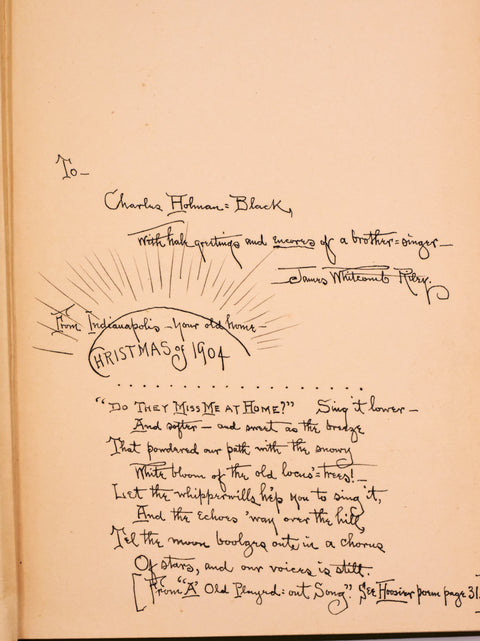 To—
Charles Holman=Black,
With hale greetings and encores of a brother=singer—
James Whitcomb Riley.
From Indianapolis—Your old home—
CHRISTMAS of 1904
"DO THEY MISS ME AT HOME?" Sing it lower—
And softer—and sweet as the breeze
That powdered our path with the snowy
White bloom of the old locus'=trees!—
Let the whipperwills he'p you to sing it,
And the echoes 'way over the hill,
Tel the moon boolges out, in a chorus
Of stars, and our voices is still.
[From "A Old Played=out Song." See Hoosier poem page 31.